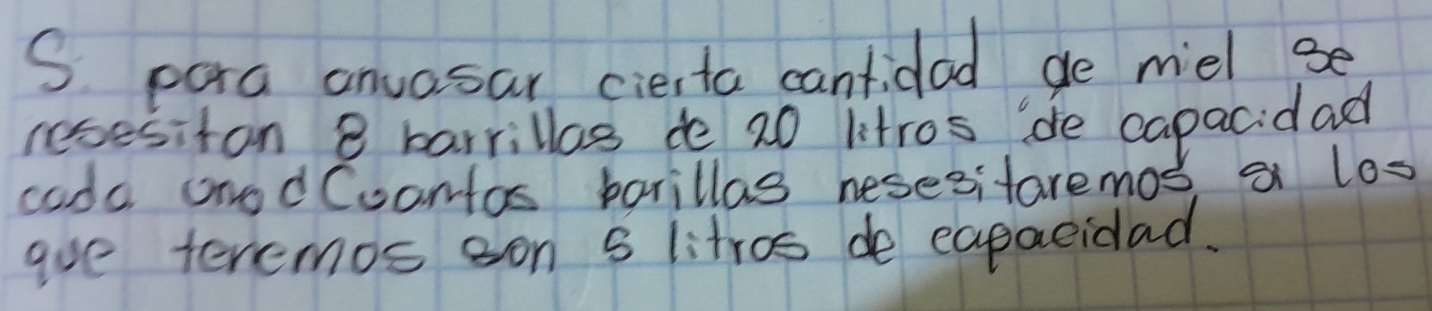 5. para anvasar cierta cantidad de miel se
nesesitan 8 barrillas de 20 litros de capacidad
cada uno d Cuantas barillas nesesitaremos si los
que teremos son 5 litros de capacidad.